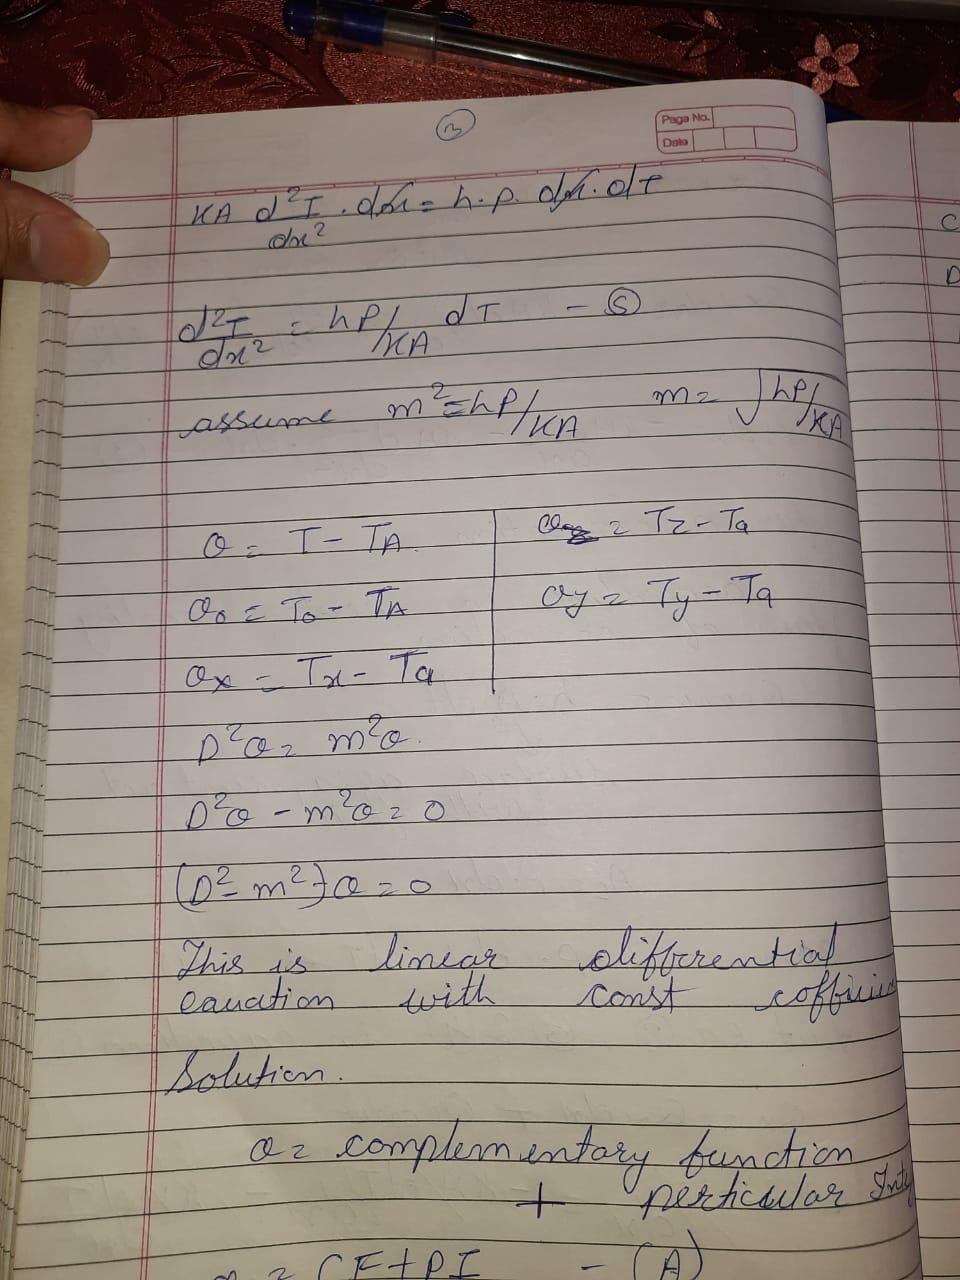 3
Page No.
Date
KA d²T/dx² . dx = h.p. dx. dT
d²T/dx² = hP/KA dT - ⑤
assume m² = hP/KA m = √hP/KA
θ = T - TA
θ₀ = T₀ - TA
θx = Tx - Ta
θz = Tz - Ta
θy = Ty - Ta
D²θ = m²θ.
D²θ - m²θ = 0
(D² - m²)θ = 0
This is linear differential
eauation with const
Solution.
θ = complementary function
+ perticular
= CF + PI - (A)
C
D